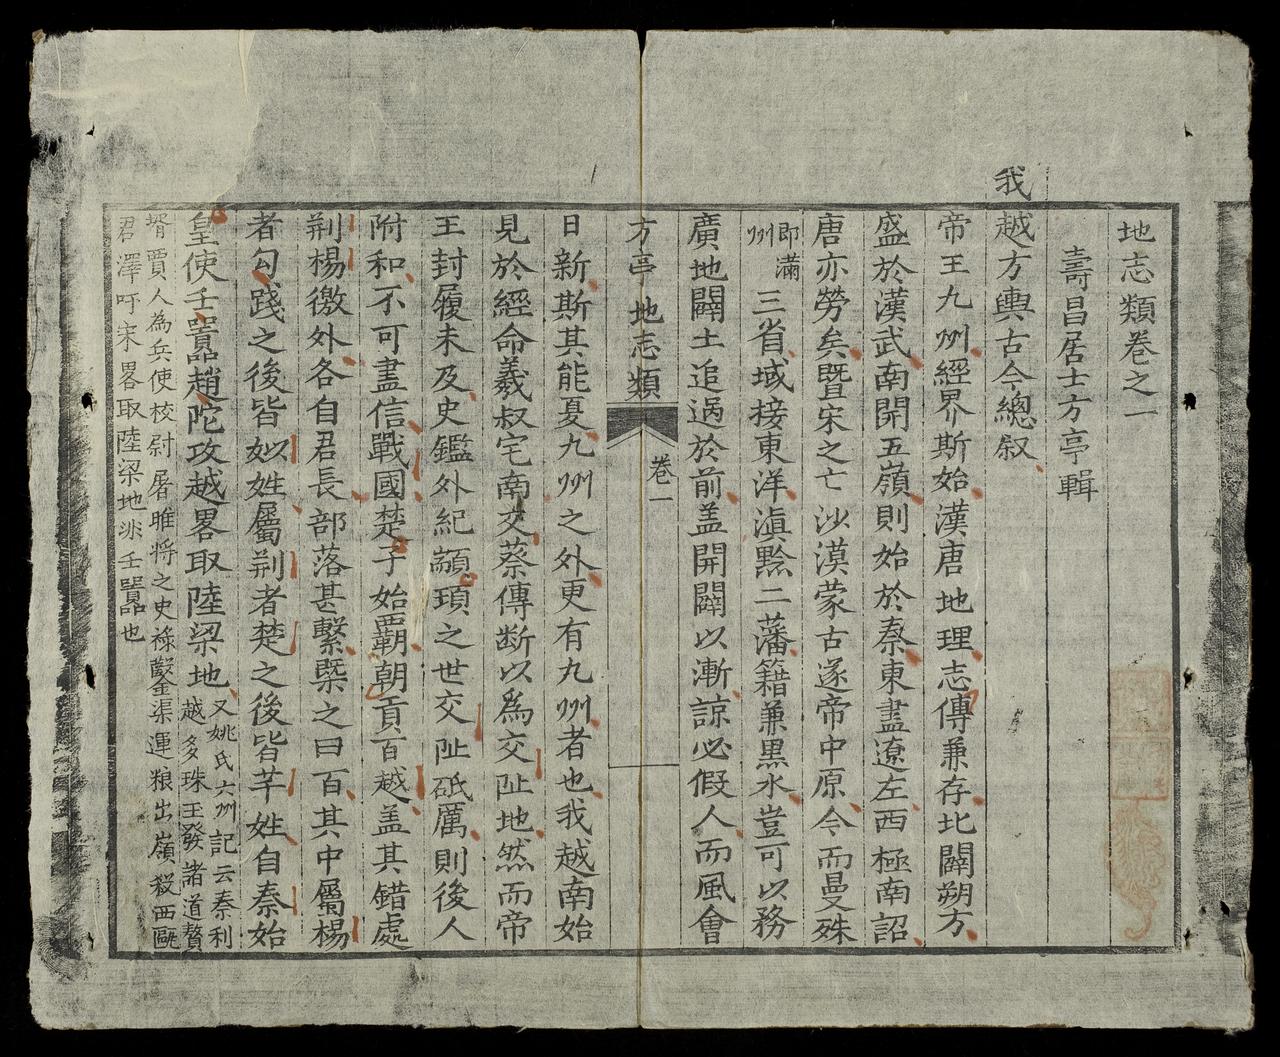 地志類卷之一
壽昌居士方亭輯
我越方輿古今總叙
帝王九州經界斯始漢唐地理志傳兼存北闢朔方
盛於漢武南開五嶺則始於秦東盡遼左西極南詔
唐亦勞矣曁宋之亡沙漠蒙古遂帝中原今而曼殊
即滿州三省域接東洋滇黔二藩籍兼黒水豈可以務
廣地闢土追過於前盖開闢以漸諒必假人而風會
方亭地志類 卷一
日新斯其能憂九州之外更有九州者也我越南始
見於經命羲叔宅南交蔡傳断以爲交阯地然而帝
王封履未及史鑑外紀顓頊之世交阯砥厲則後人
附和不可盡信戰國楚子始覇朝貢百越盖其錯處
荆楊徼外各自君長部落甚繫槩之曰百其中屬楊
者勾踐之後皆姒姓屬荆者楚之後皆芈姓自秦始
皇使壬嚣趙陀攻越畧取陸梁地又姚氏六州記云秦利
越多珠玉發諸道贅
壻賈人為兵使校尉屠睢将之史祿鑿渠運粮出嶺殺西甌
君澤吁宋畧取陸梁地非壬嚣也